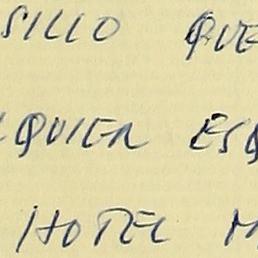 SILLO QUE
QUIER ESQ
HOTEL M